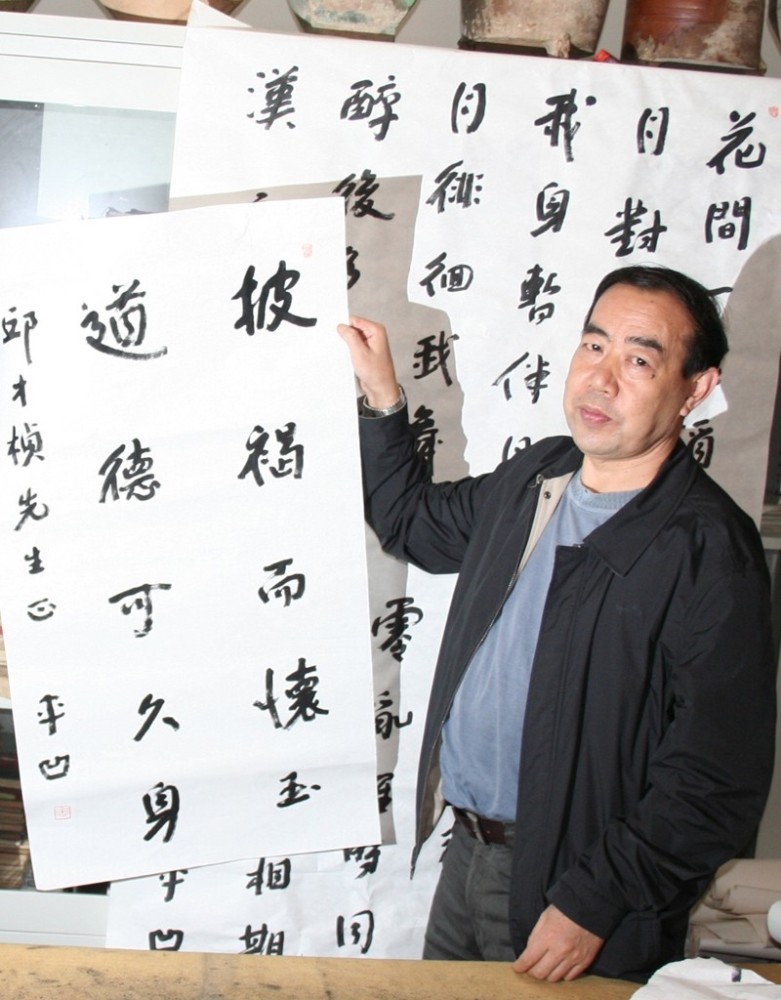 花間一
月對
我身暫伴月
月徘徊我舞零亂醒時同
醉後各相期
漢平凹
披褐而懷玉
道德可久身
邱才楨先生正 平凹